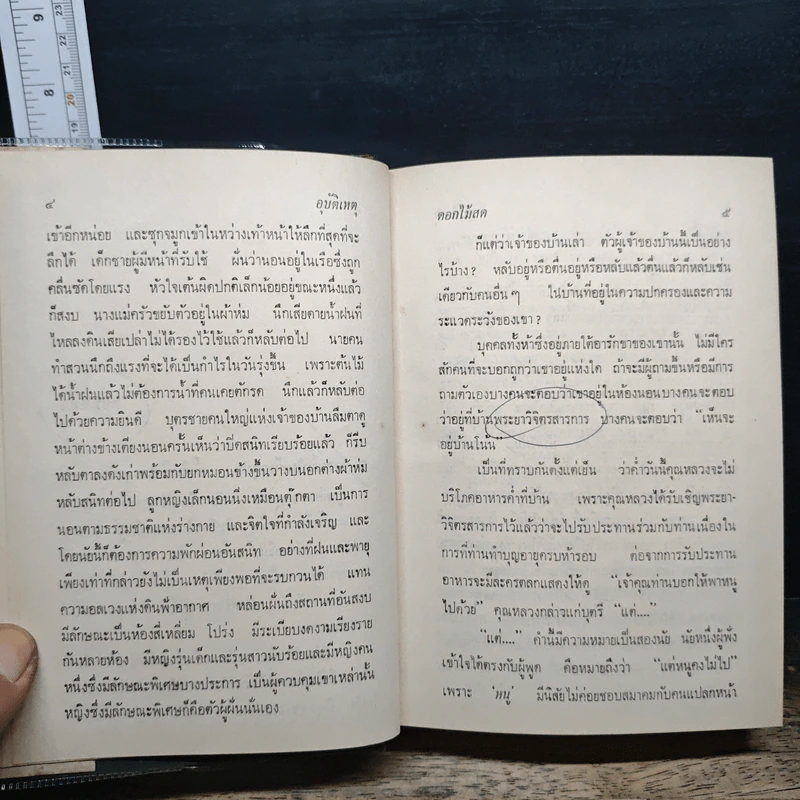 9
23
22
21
8
20
19
๔ อุบัติเหตุ
เข้าอีกหน่อย และซุกจมูกเข้าในหว่างเท้าหน้าให้ลึกที่สุดที่จะ
ลึกได้ เด็กชายผู้มีหน้าที่รับใช้ ฝันว่านอนอยู่ในเรือซึ่งถูก
คลื่นซัดโดยแรง หัวใจเต้นผิดปกติเล็กน้อยอยู่ขณะหนึ่งแล้ว
ก็สงบ นางแม่ครัวขยับตัวอยู่ในผ้าห่ม นึกเสียดายน้ำฝนที่
ไหลลงดินเสียเปล่าไม่ได้รองไว้ใช้แล้วก็หลับต่อไป นายคน
ทำสวนนึกถึงแรงที่จะได้เป็นกำไรในวันรุ่งขึ้น เพราะต้นไม้
ได้น้ำฝนแล้วไม่ต้องการน้ำที่คนเคยตักรด นึกแล้วก็หลับต่อ
ไปด้วยความยินดี บุตรชายคนใหญ่แห่งเจ้าของบ้านลืมตาดู
หน้าต่างข้างเตียงนอนครั้นเห็นว่าปิดสนิทเรียบร้อยแล้ว ก็รีบ
หลับตาลงดังเก่าพร้อมกับยกหมอนข้างขึ้นวางบนอกต่างผ้าห่ม
หลับสนิทต่อไป ลูกหญิงเล็กนอนนิ่งเหมือนตุ๊กตา เป็นการ
นอนตามธรรมชาติแห่งร่างกาย และจิตใจที่กำลังเจริญ และ
โดยนัยนี้ก็ต้องการความพักผ่อนอันสนิท อย่างที่ฝนและพายุ
เพียงเท่าที่กล่าวยังไม่เป็นเหตุเพียงพอที่จะรบกวนได้ แทน
ความอลเวงแห่งดินฟ้าอากาศ หล่อนฝันถึงสถานที่อันสงบ
มีลักษณะเป็นห้องสี่เหลี่ยม โปร่ง มีระเบียบงดงามเรียงราย
กันหลายห้อง มีหญิงรุ่นเด็กและรุ่นสาวนับร้อยและมีหญิงคน
หนึ่งซึ่งมีลักษณะพิเศษบางประการ เป็นผู้ควบคุมเขาเหล่านั้น
หญิงซึ่งมีลักษณะพิเศษก็คือตัวผู้ฝันนั่นเอง
ดอกไม้สด ๕
ก็แต่ว่าเจ้าของบ้านเล่า ตัวผู้เจ้าของบ้านนี้เป็นอย่าง
ไรบ้าง? หลับอยู่หรือตื่นอยู่หรือหลับแล้วตื่นแล้วก็หลับเช่น
เดียวกับคนอื่นๆ ในบ้านที่อยู่ในความปกครองและความ
ระแวดระวังของเขา?
บุคคลทั้งห้าซึ่งอยู่ภายใต้อารักขาของเขานั้น ไม่มีใคร
สักคนที่จะบอกถูกว่าเขาอยู่แห่งใด ถ้าจะมีผู้ถามขึ้นหรือมีการ
ถามตัวเองบางคนจะตอบว่าเขาอยู่ในห้องนอนบางคนจะตอบ
ว่าอยู่ที่บ้านพระยาวิจิตรสารการ บางคนจะตอบว่า “เห็นจะ
อยู่บ้านโน้น”
เป็นที่ทราบกันตั้งแต่เย็น ว่าค่ำวันนี้คุณหลวงจะไม่
บริโภคอาหารค่ำที่บ้าน เพราะคุณหลวงได้รับเชิญพระยา-
วิจิตรสารการไว้แล้วว่าจะไปรับประทานร่วมกับท่านเนื่องใน
การที่ท่านทำบุญอายุครบห้ารอบ ต่อจากการรับประทาน
อาหารจะมีละครตลกแสดงให้ดู “เจ้าคุณท่านบอกให้พาหนู
ไปด้วย” คุณหลวงกล่าวแก่บุตรี “แต่....”
“แต่....” คำนี้มีความหมายเป็นสองนัย นัยหนึ่งผู้ฟัง
เข้าใจได้ตรงกับผู้พูด คือหมายถึงว่า “แต่หนูคงไม่ไป”
เพราะ ‘หนู’ มีนิสัยไม่ค่อยชอบสมาคมกับคนแปลกหน้า